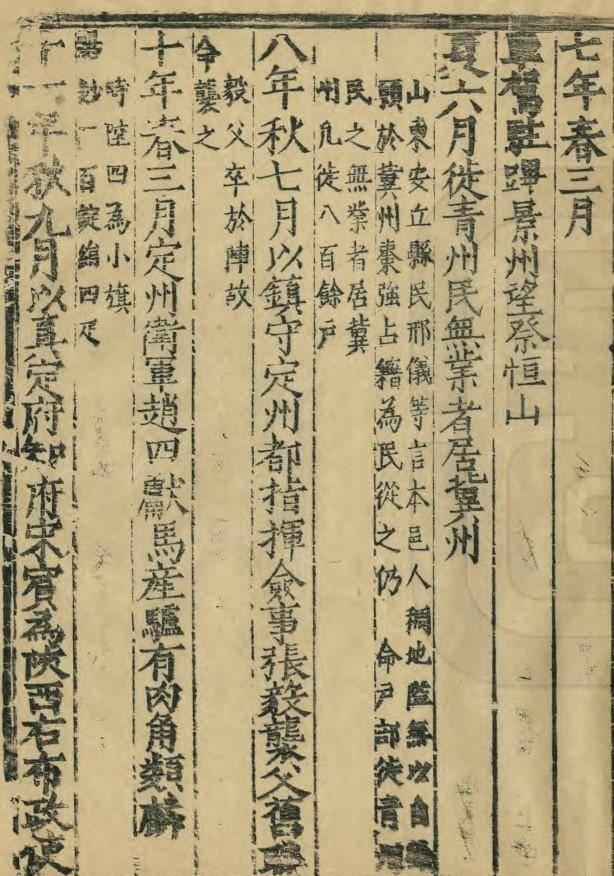 七年春三月
車駕駐蹕景州望祭恒山
夏六月徙青州民無業者居冀州
山東安丘縣民邢儀等言本邑人稠地隘無以自
願於冀州棗強占籍為民從之仍 命戶部徙青州
民之無業者居冀
州凡徙八百餘戶
八年秋七月以鎮守定州都指揮僉事張毅襲父舊職
毅父卒於陣故
今襲之
十年春三月定州衛軍趙四獻馬産驢有肉角類麟
時陞四為小旗
賜鈔一百錠絹四疋
十一年秋九月以真定府知府宋賓為陝西右布政使